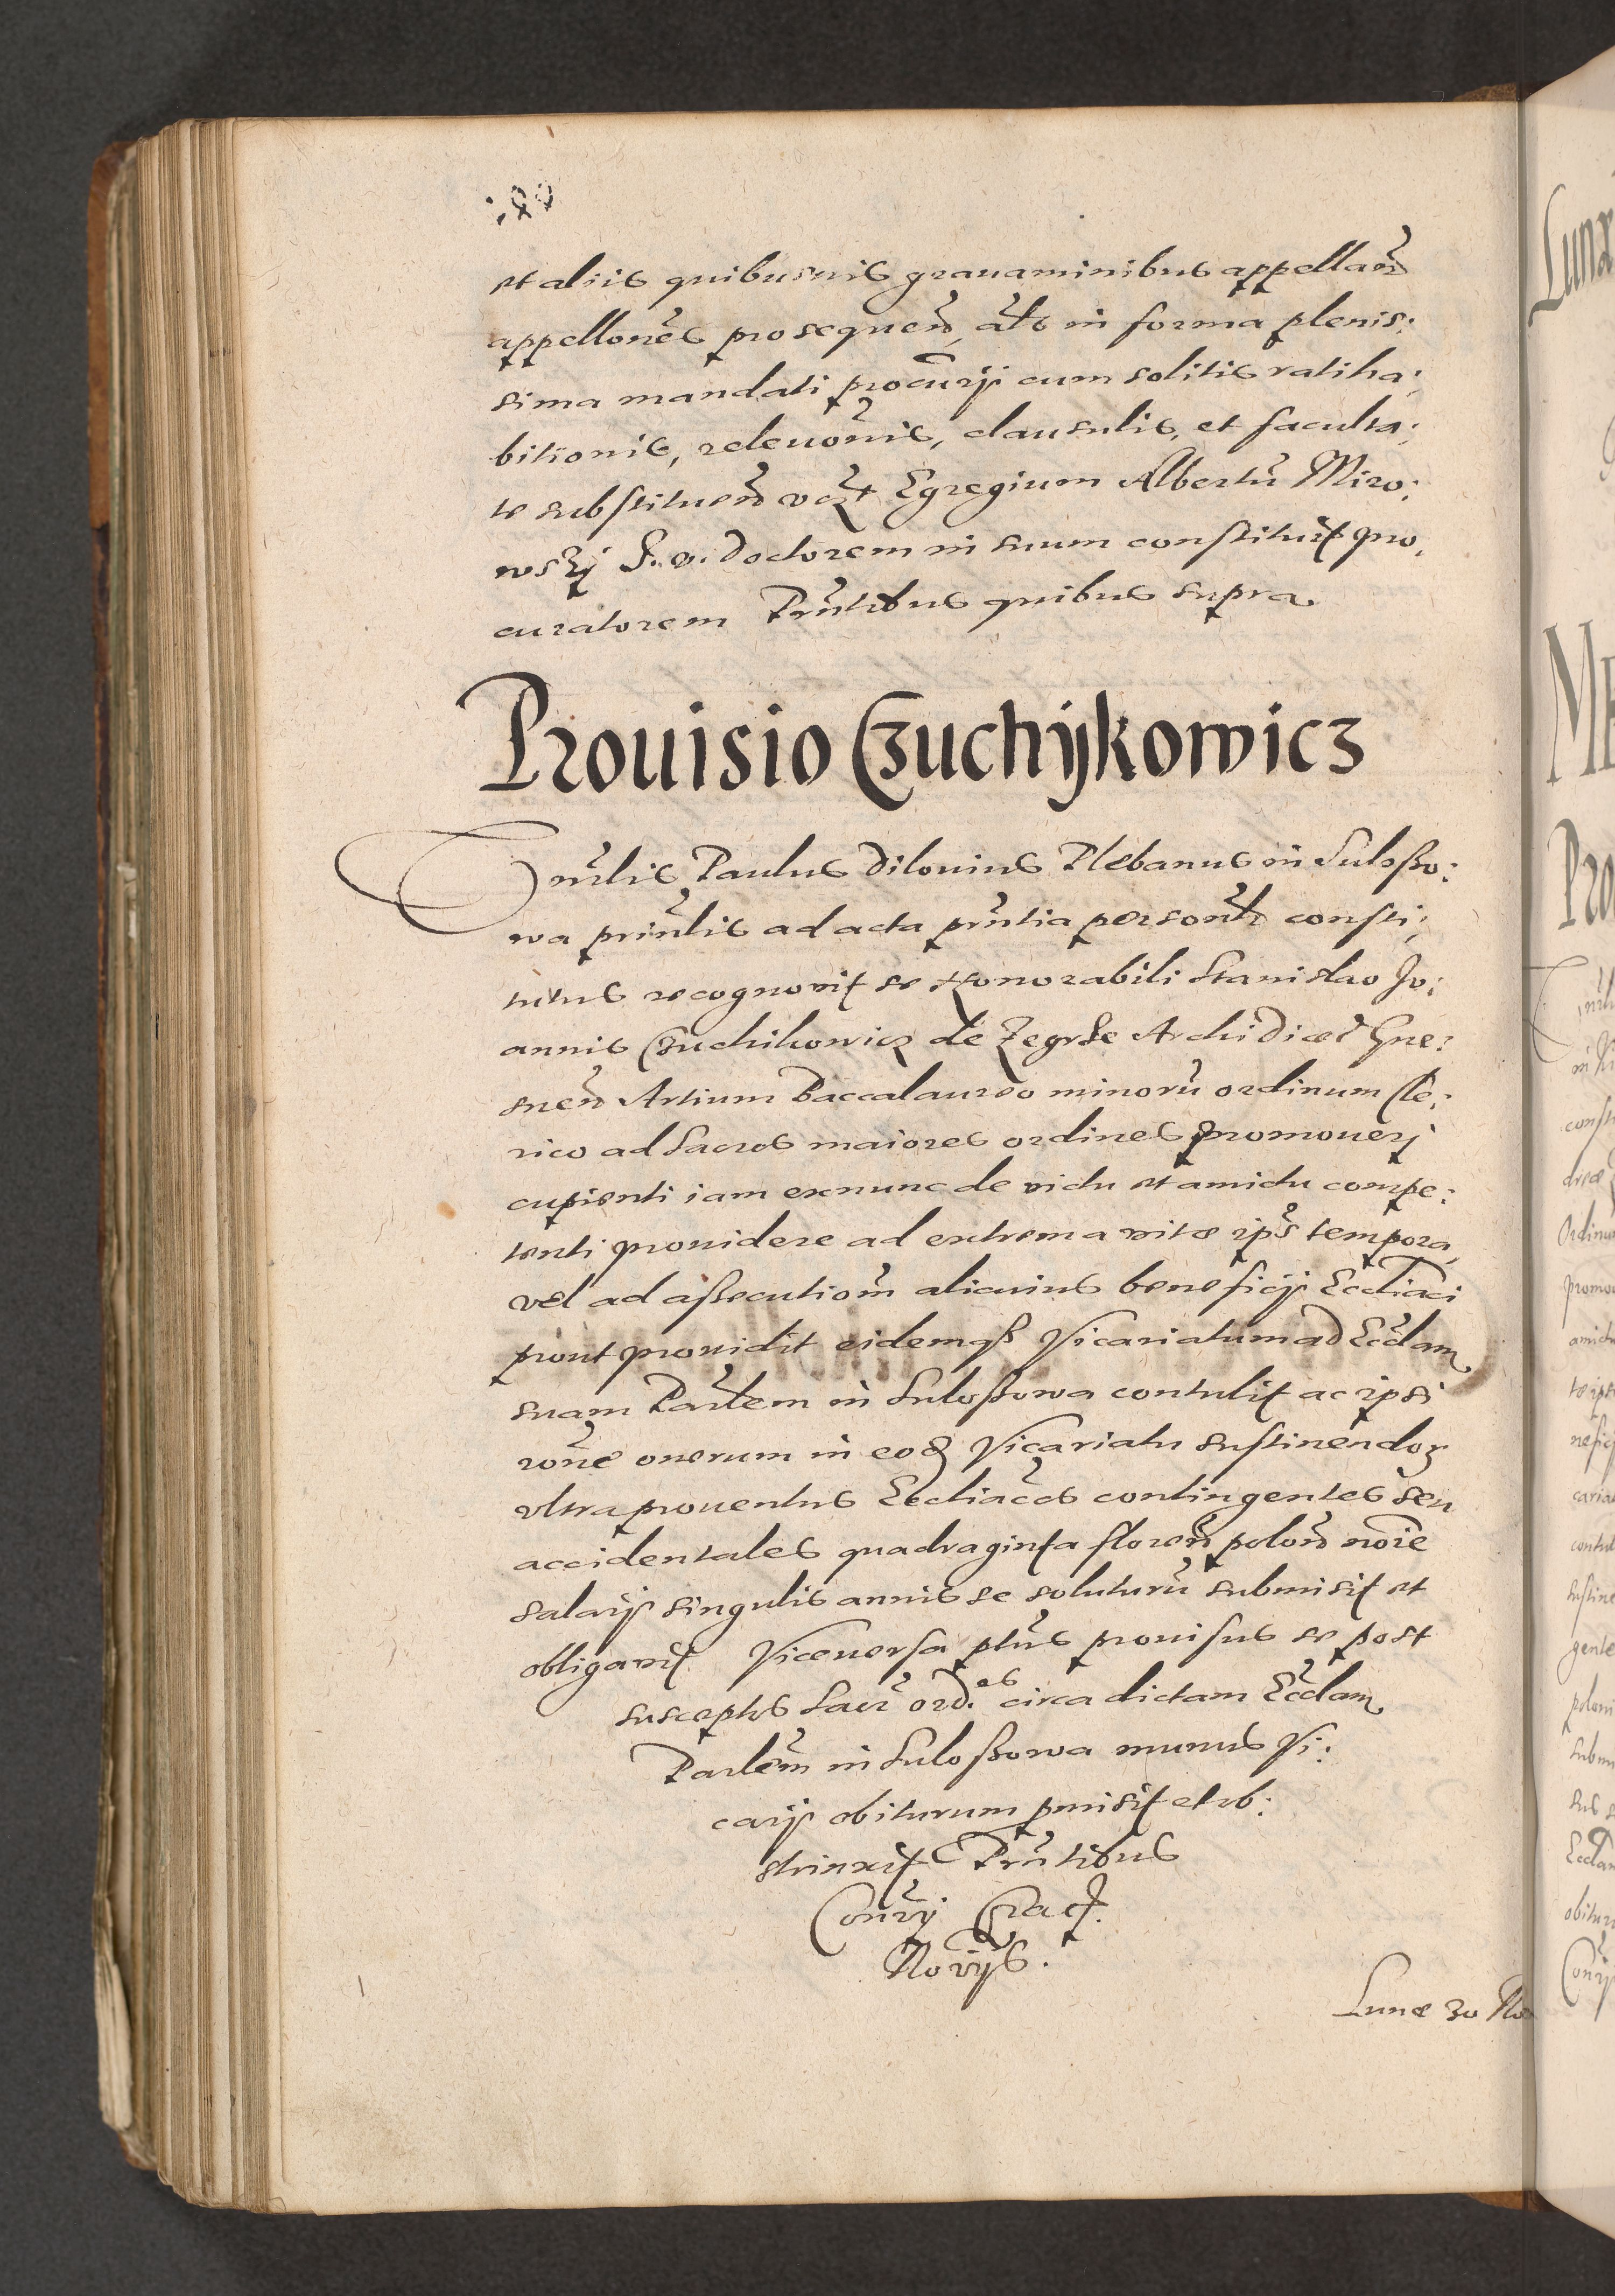 et aliis quibusuis grauaminibus appellan̄d
appellones prosequen̄d, als in forma plenis:
sima mandati procurij cum solitis ratiha:
bitionis, releuonis, clausulis, et faculta:
te substituen̄d Egregium Albertū Miro:
wskj J. v. doctorem in suum constituit pro,
curatorem Prntibus quibus supra
Prouisio Czuchykowicz
Dnrlis Paulus Dilouius Plebanus in Sulosso:
wa prinlis ad acta prntia personlr consti:
tutus recognouit se Honorabili Stanislao Jo:
annis Czuchikowicz de Zegrze Archidiaec Gne:
snen̄ Artium Baccalaureo minorū ordinum Cle:
rico ad Sacros maiores ordines promouerj
cupienti iam exnunc de victu et amictu compe:
tenti prouidere ad extrema vitæ ips̄ tempora,
vel ad assecutiom̄ alicuius beneficij Eccliaci
prout prouidit eidemqz Vicariatum ad Eccl̄am
suam Parlem in Sulossowa contulit ac ipsi
rone onerum in eod Vicariatu sustinendoꝝ
vltra prouentus Eccliacos contingentes seu
accidentales quadraginta floren̄ polon̄ nōie
salarij singulis annis se soluturū submisit et
obligauit Viceuersa pltus prouisus se post
susceptos Sacr̄ ord.es circa dictam Eccl̄am
Parlem in Sulossowa munus Vi:
carij obiturum pmisit et ob:
strinxit Prntibus
Conrij Crac.
Norijs.
Lunæ 30 No